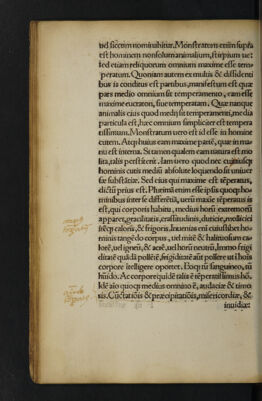 uel sectim nominabitur. Monstratum enim supra
est hominem non solum animalium, stirpium uel
sed etiam reliquorum omnium maxime esse tem-
peratum. Quoniam autem ex multis & dissidenti
bus is conditus est partibus, manifestum est quæ
pars medio omnium sit temperamento, eam esse
maxime eucraton, siue temperatam. Quæ nanque
animalis eius quod medij sit temperamenti, media
particula est, hæc omnium simpliciter est tempera
tissimum. Monstratum uero est id esse in homine
cutem. Atque huius eam maxime parte, quæ in ma-
nu est interna. Si tamen qualem eam natura est mo
lita, talis perstiterit. Iam uero quod nec cuiusuis
hominis cutis mediū absolute loquendo sit uniuer
sæ substātiæ. Sed eius qui maxime est tēperatus,
dictū prius est. Plurimā enim esse ipsis quoque ho-
minibus inter se differētiā, uerū maxīe tēperatus is
est, qui corporis habitu, medius horū extremorū
apparet, gracilitatis, crassitudinis, duricie, mollicici
itēque caloris, & frigoris. Inuenias eni cuiuslibet ho-
minis tangēdo corpus, uel mitē & halituosum ca-
lorē, uel ignēū, & acrē, uel horū neutrū, immo frigi
ditatē quādā pollētē, frigiditatē aūt pollere ut i hōis
corpore itelligere oportet. Eoque nā sanguineo, sit
huido. Ac corpore qui dē talis ē tēperatissimus hō.
Idē aīo quoque medius omnino ē, audaciæ & timo
ris. Cūctatiōis & præcipitatiōis, misericordiæ, &
inuidiæ: